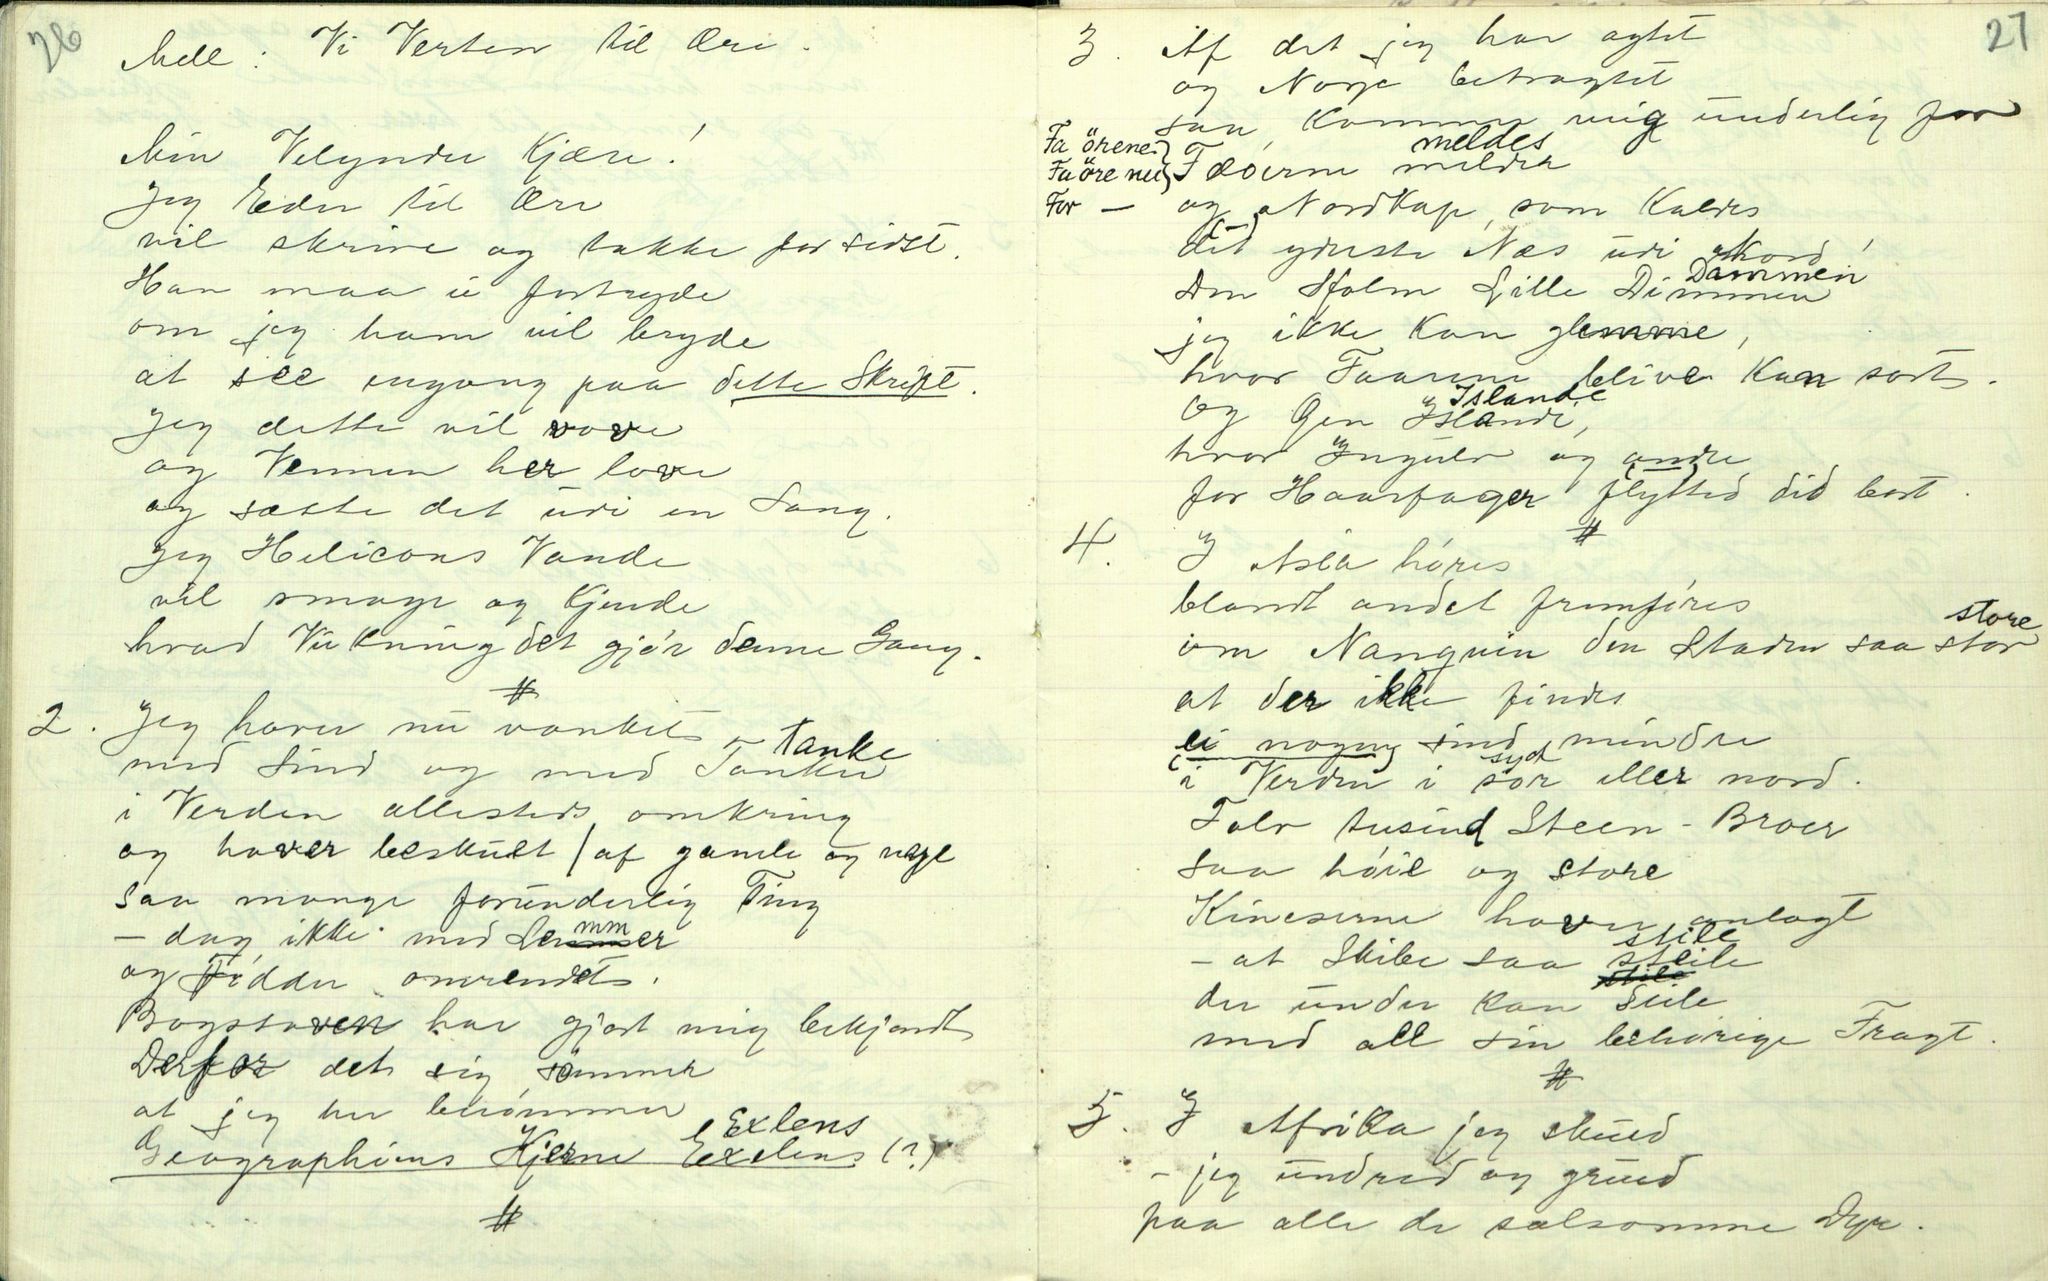 26
Mell: Vi Verten til Ære.
Min Velynder Kjære!
Jeg Eder til Ære
vil skrive og takke for sidst.
Han maa ei fortryde
om jeg ham vil bryde
at see engang paa dette Skrift.
Jeg dette vil vove
og Vennen her love
og sætte det udi en Sang.
Jeg Helicons Vande
vil smage og kjende
hvad Virkning det gjør denne Gang.
#
2. Jeg haver nu vanket
tanke
med Sind og med Tanker
i Verden allesteds omkring
og haver beskuet / af gamle og nye
saa mange forunderlig Ting
mm
- dog ikke med Lemmer
og Fødder omrendt.
Bogstaven har gjort mig bekjendt
Derfor det sig sømmer
at jeg her berømmer
Exlens
Geographiens Hjerne Exelens (?)
#
27
3. Af det jeg har agtet
og Nøye betragtet
saa kommer mig underlig for
Faörene meldes
Faörene Færøerne meldes
For — og Nordkap, som kaldes
det yderste Næs udi Nord
Dammen
Den Holm Lille Dimmen
jeg ikke kan glemme,
hvor Faarene blive kan sort.
Islande
Og Øen Islande,
hvor Ingulv og andre
for Haarfager flytted did bort.
#
4. I Asia høres
blandt andet fremføres
store
om Nanquin den Staden saa stor
at der ikke findes
ei nogen sind mindre
syd
i Verden i sør eller nord.
Tolv tusind Steen-Broer
saa høie og store
Kineserne haver anlagt
stile
- at Skibe saa steile
stile
der under kan seile
med all sin behørige Fragt.
#
5. I Afrika jeg skued
- jeg undred og grued
paa alle de sælsomme Dyr.